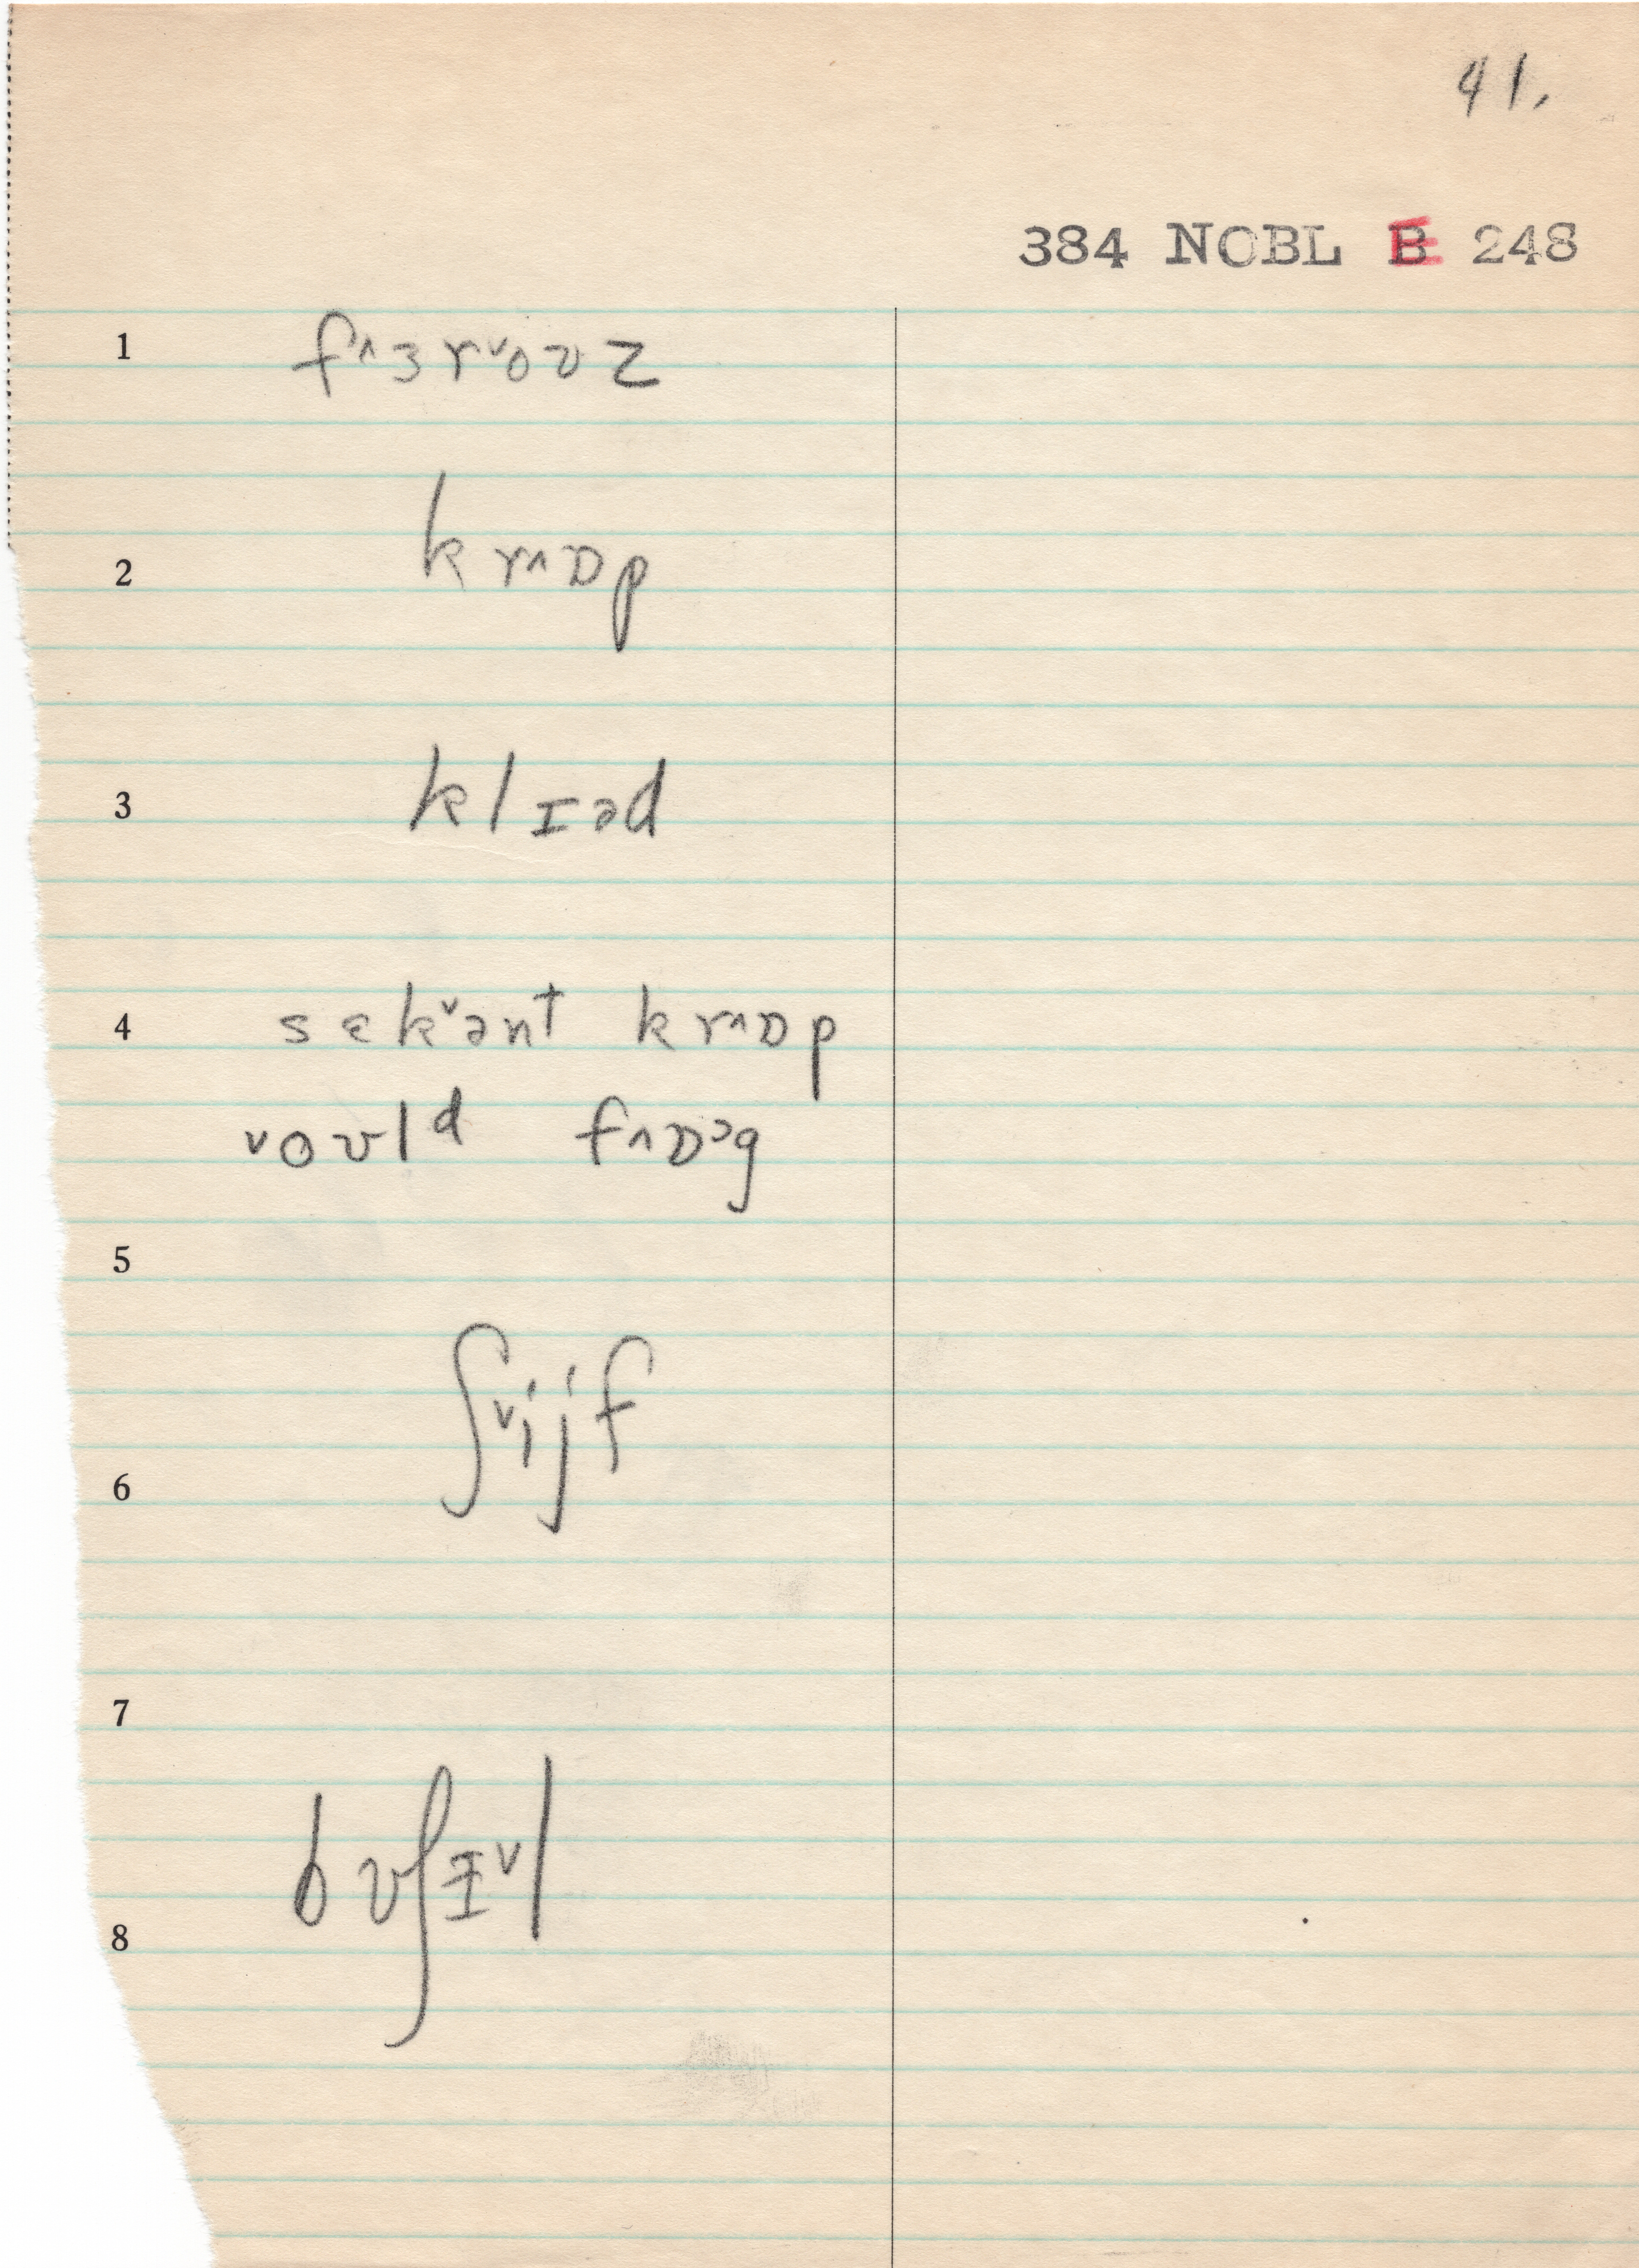 41.
384 NOBL B 248
1 f˄ɜr˅oʊz
2 kr˄ɒp
3 klɪəd
4 sɛk˅ənt kr˄ɒp
˅oʊlᵈ f˄ɒᵓg
5
6 ʃ˅ijf
7
8 bʊʃɪ˅l